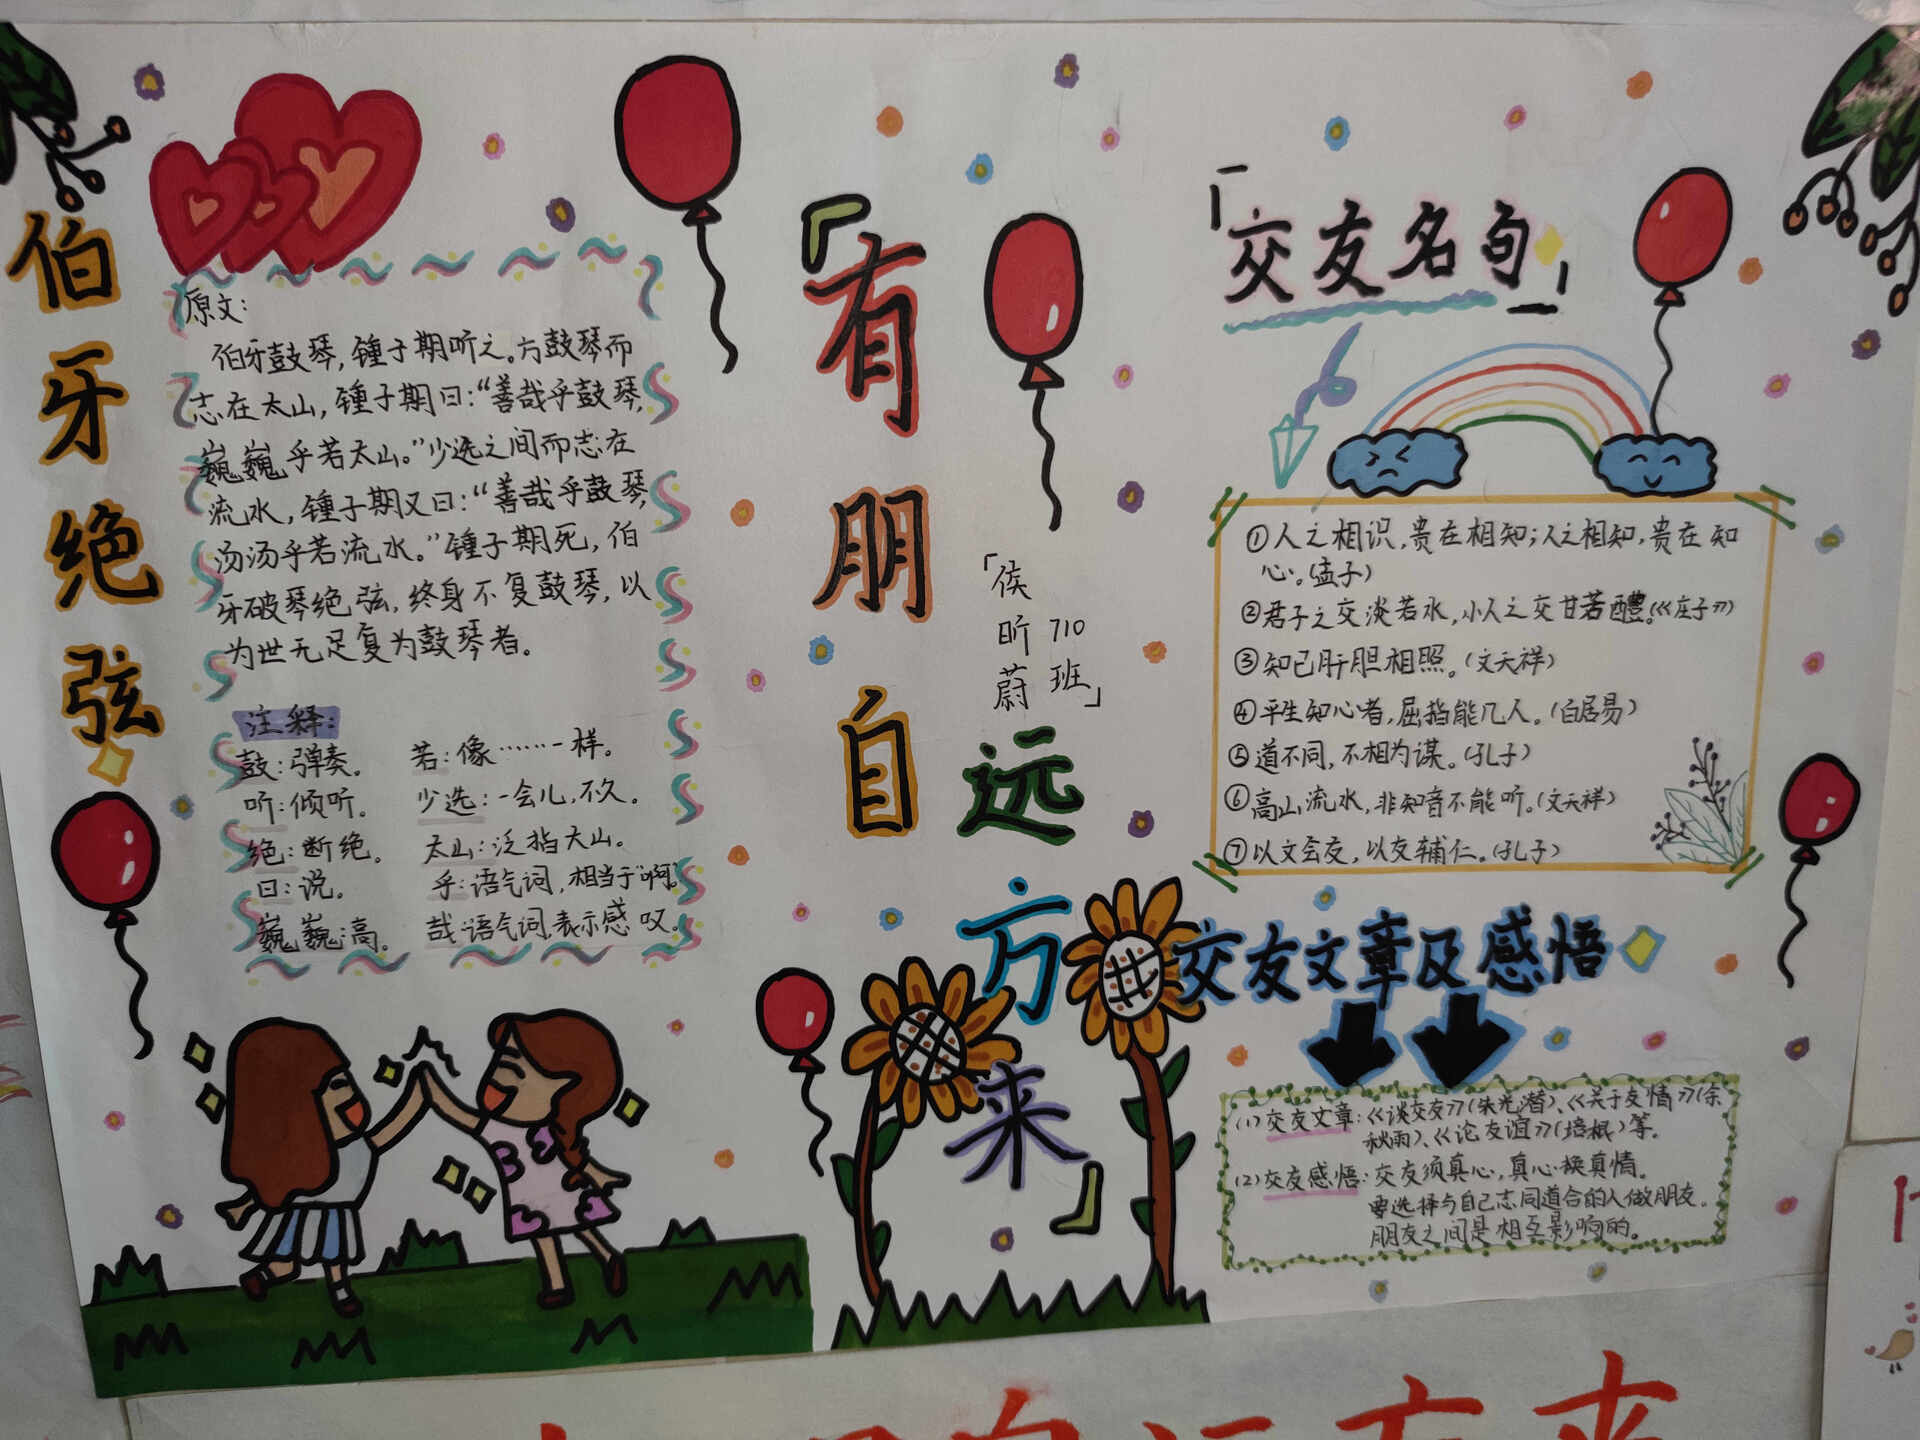 伯牙绝弦
原文:
伯牙鼓琴,锺子期听之。方鼓琴而
志在太山,锺子期曰:“善哉乎鼓琴,
巍巍乎若太山。”少选之间而志在
流水,锺子期又曰:“善哉乎鼓琴,
汤汤乎若流水。”锺子期死,伯
牙破琴绝弦,终身不复鼓琴,以
为世无足复为鼓琴者。
注释:
鼓:弹奏。 若:像……一样。
听:倾听。 少选:一会儿,不久。
绝:断绝。 太山:泛指大山。
曰:说。 乎:语气词,相当于“啊”。
巍巍:高。 哉:语气词,表示感叹。
「有朋自远方来」
「侯昕蔚
710班」
「交友名句」
①人之相识,贵在相知;人之相知,贵在知
心。(孟子)
②君子之交淡若水,小人之交甘若醴。(《庄子》)
③知己肝胆相照。(文天祥)
④平生知心者,屈指能几人。(白居易)
⑤道不同,不相为谋。(孔子)
⑥高山流水,非知音不能听。(文天祥)
⑦以文会友,以友辅仁。(孔子)
交友文章及感悟
(1)交友文章:《谈交友》(朱光潜)、《关于友情》(余
秋雨)、《论友谊》(培根)等。
(2)交友感悟:交友须真心,真心换真情。
要选择与自己志同道合的人做朋友。
朋友之间是相互影响的。